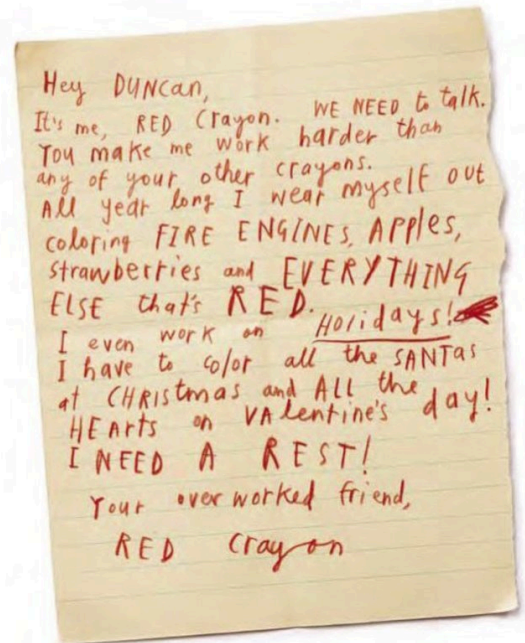 Hey DUNCan,
It's me, RED Crayon. WE NEED to talk.
You make me work harder than
any of your other crayons.
All year long I wear myself out
coloring FIRE ENGINES, APPles,
strawberries and EVERYTHING
ELSE that's RED.
I even work on Holidays!
I have to color all the SANTas
at CHRIStmas and ALL the
HEArts on VAlentine's day!
I NEED A REST!
Your overworked friend,
RED Crayon